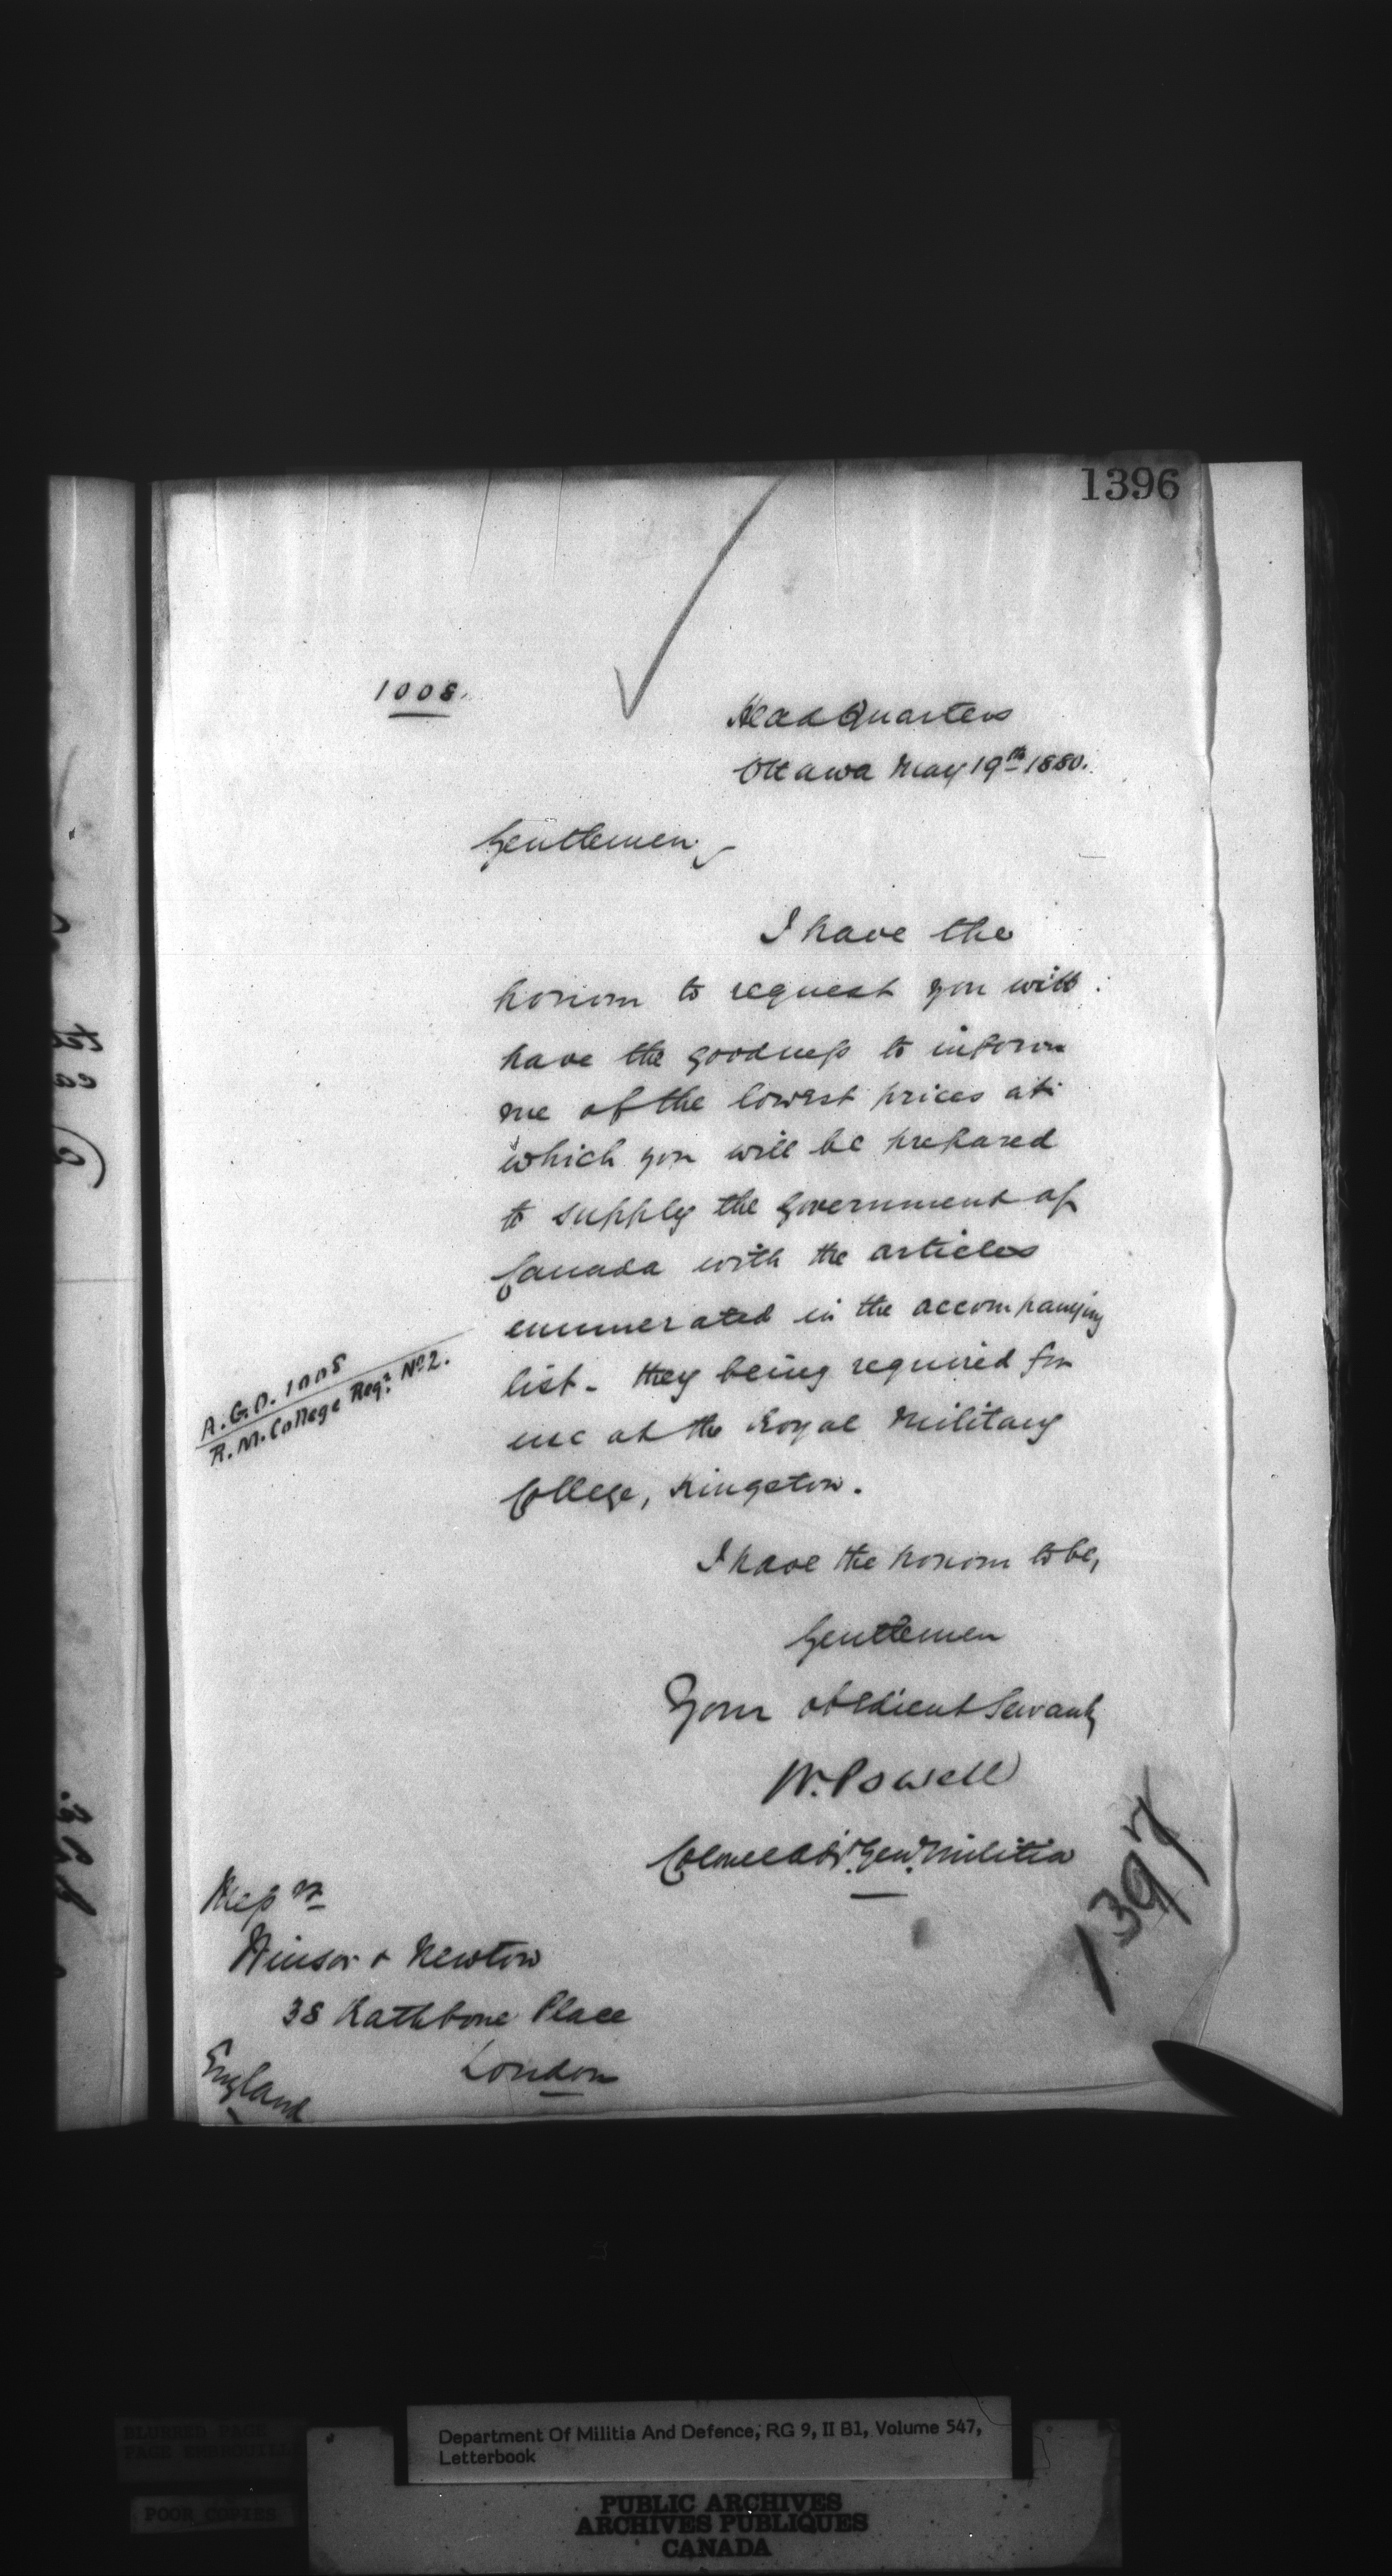 1396
1008.
HeadQuarters
Ottawa May 19th 1880.
Gentlemen,
I have the
honour to request you will
have the goodness to inform
me of the lowest prices at
which you will be prepared
to supply the Government of
Canada with the articles
enumerated in the accompanying
list - they being required for
use at the Royal Military
College, Kingston.
A.G.O. 1008
R.M. College Reqn. No. 2.
I have the honour to be,
Gentlemen
Your obedient Servant,
W. Powell
Colonel Adj. Genl. Militia
Messrs
Winsor & Newton
38 Rathbone Place
London
England
1397
Department Of Militia And Defence, RG 9, II B1, Volume 547,
Letterbook
BLURRED PAGE
POOR COPIES
PUBLIC ARCHIVES
ARCHIVES PUBLIQUES
CANADA